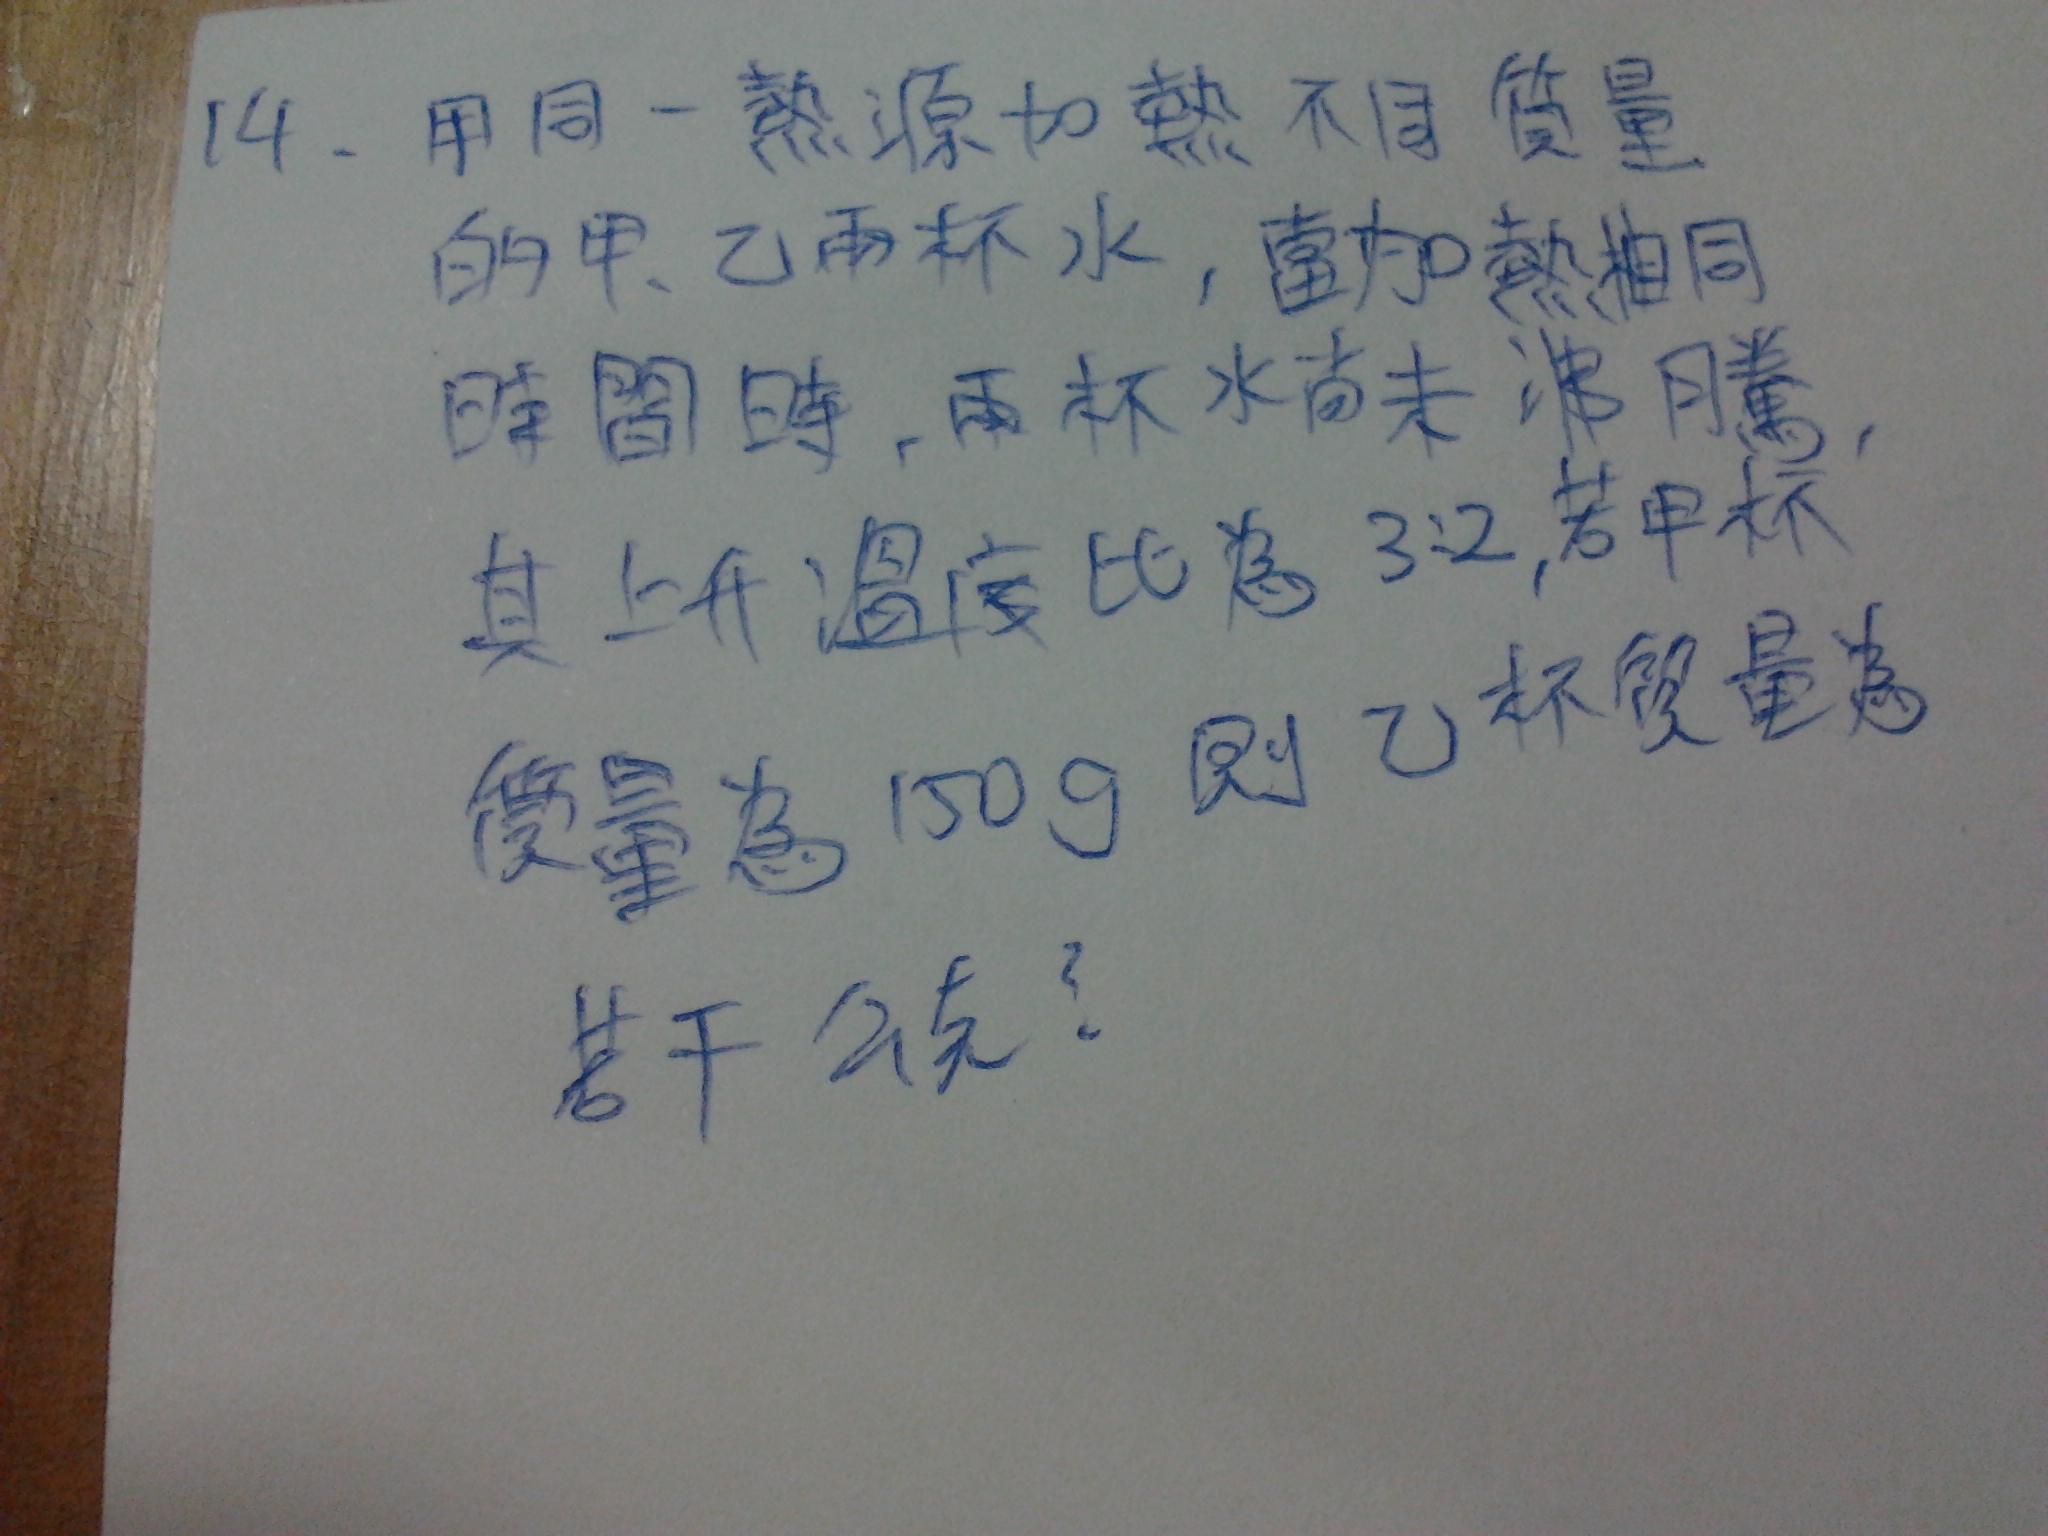 14. 用同一熱源加熱不同質量
的甲、乙兩杯水,當加熱相同
時間時,兩杯水尚未沸騰,
其上升溫度比為3:2,若甲杯
質量為150g則乙杯質量為
若干公克?